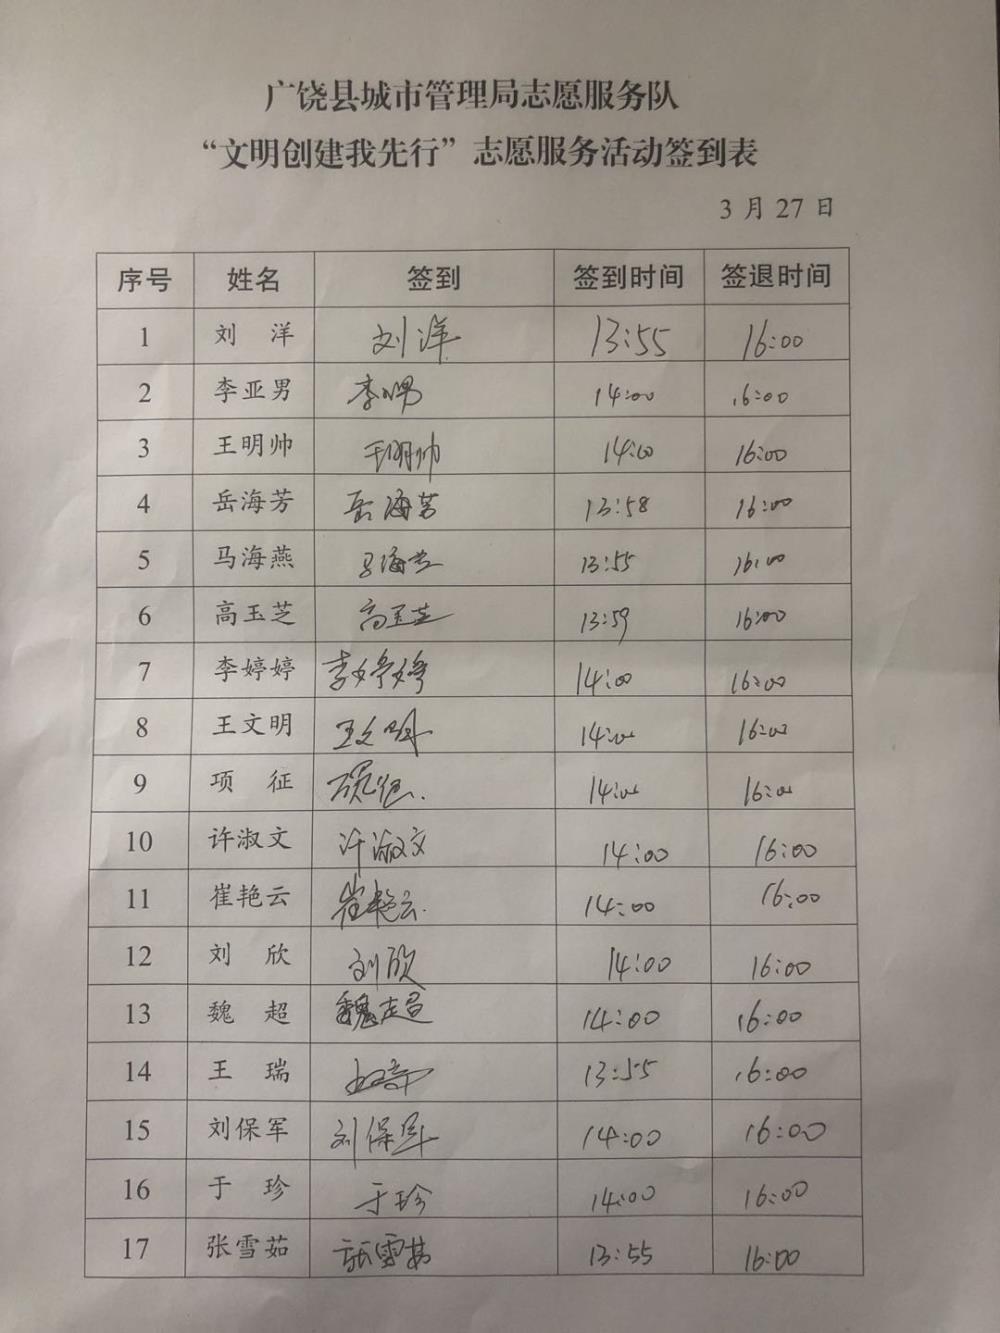 广饶县城市管理局志愿服务队
“文明创建我先行”志愿服务活动签到表
3月27日
序号 姓名 签到 签到时间 签退时间
1 刘 洋 刘洋 13:55 16:00
2 李亚男 李亚男 14:00 16:00
3 王明帅 王明帅 14:00 16:00
4 岳海芳 岳海芳 13:58 16:00
5 马海燕 马海燕 13:55 16:00
6 高玉芝 高玉芝 13:59 16:00
7 李婷婷 李婷婷 14:00 16:00
8 王文明 王文明 14:00 16:00
9 项 征 项征 14:00 16:00
10 许淑文 许淑文 14:00 16:00
11 崔艳云 崔艳云 14:00 16:00
12 刘 欣 刘欣 14:00 16:00
13 魏 超 魏超 14:00 16:00
14 王 瑞 13:55 16:00
15 刘保军 刘保军 14:00 16:00
16 于 珍 于珍 14:00 16:00
17 张雪茹 张雪茹 13:55 16:00